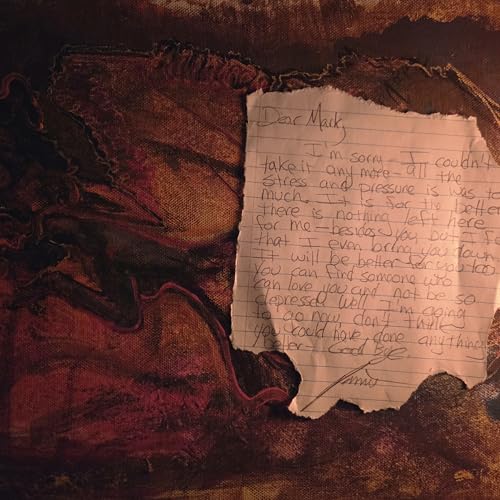 Dear Mark,
I'm sorry - I couldn't
take it any more - all the
stress and pressure is was t
much. It is for the better
there is nothing left here
for me - besides you, but I f
that I even bring you down
It will be better for you too
you can find someone who
can love you and not be so
depressed. Well I'm going
to go now, don't think
you could have done anything
better. Good Bye